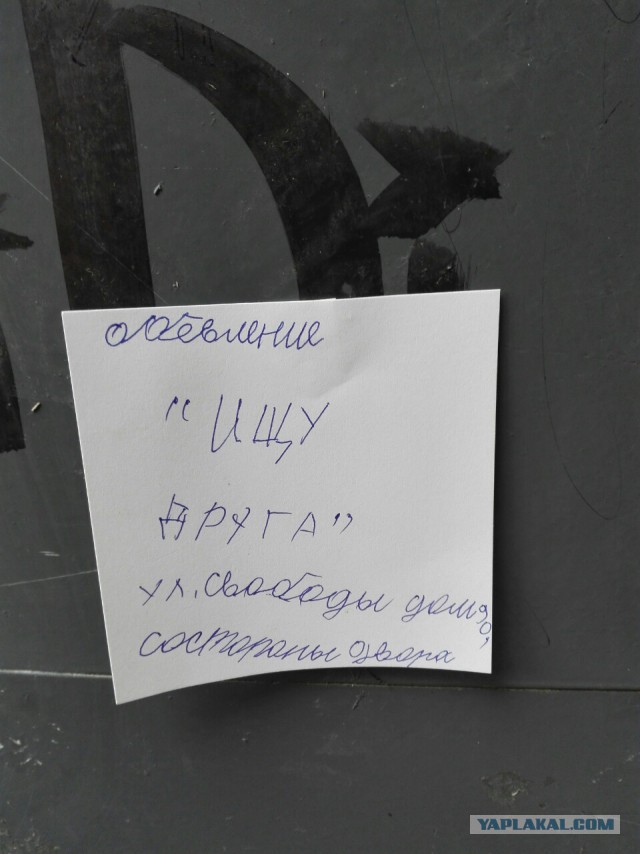 обевление
"ИЩУ
ДРУГА"
ул. свободы дом 30,
состороны двора
YAPLAKAL.COM